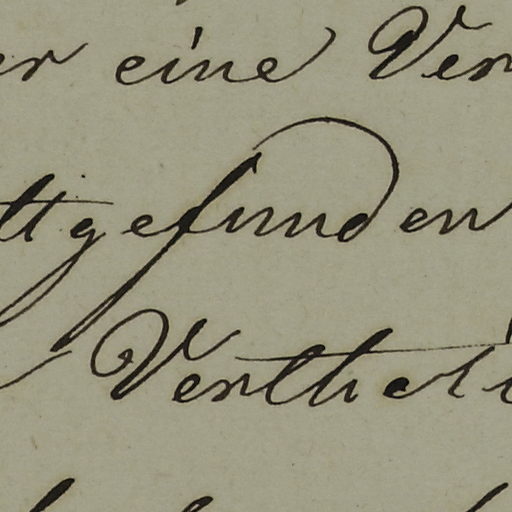 er eine Ver
ttgefunden
Verthei